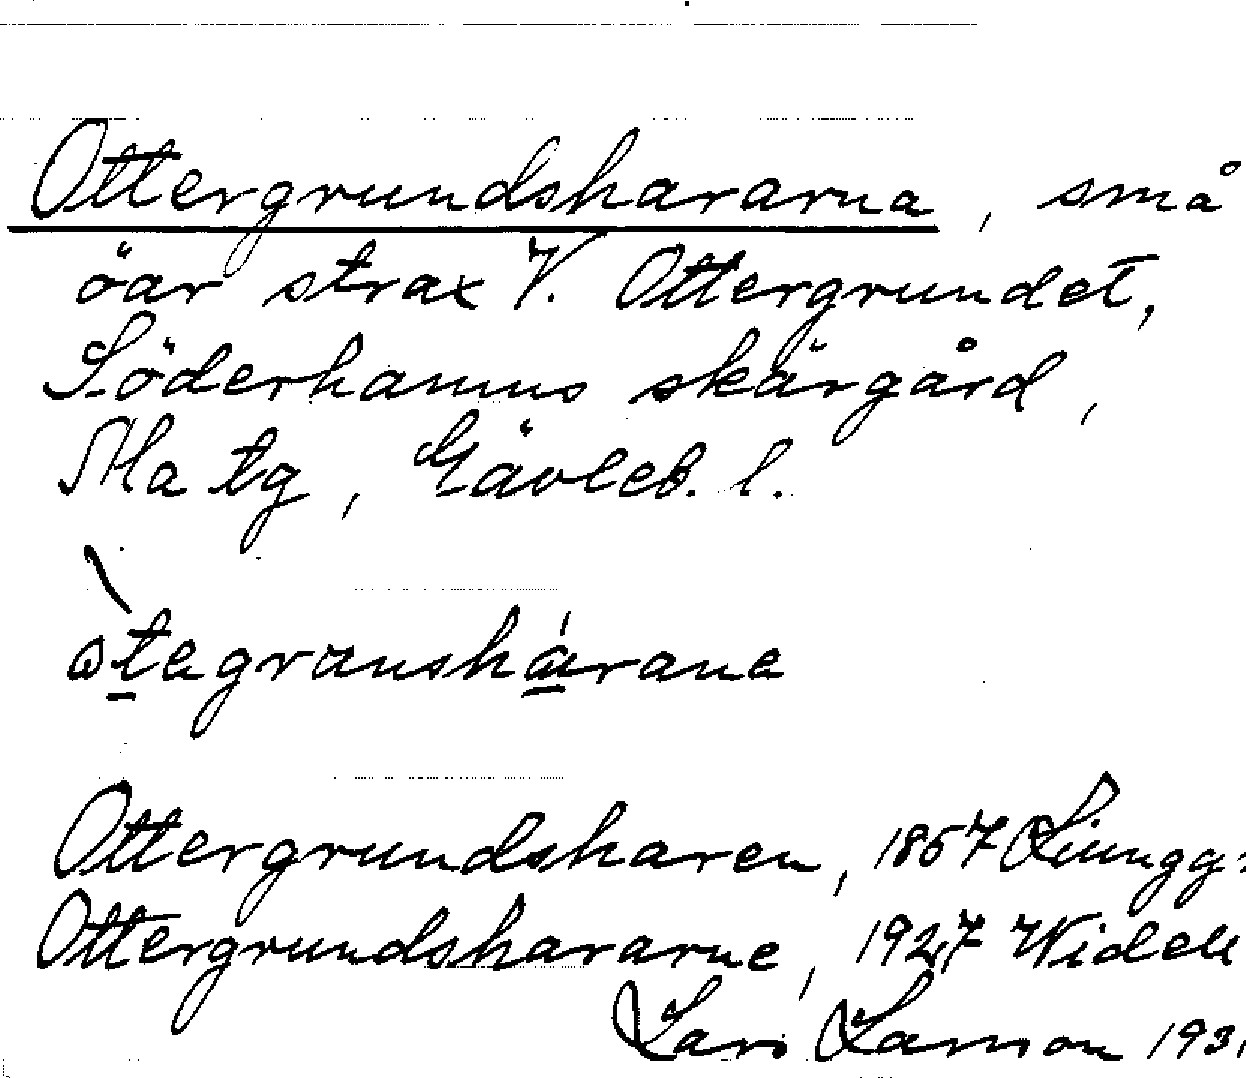 Ottergrundshararna, små
öar strax V. Ottergrundet,
Söderhamns skärgård,
Ma tg, Gävleb. l.
Ottergrundsharen, 1867 Ljunggr
Ottergrundshararne, 1927 Widell
Lars Larsson 193